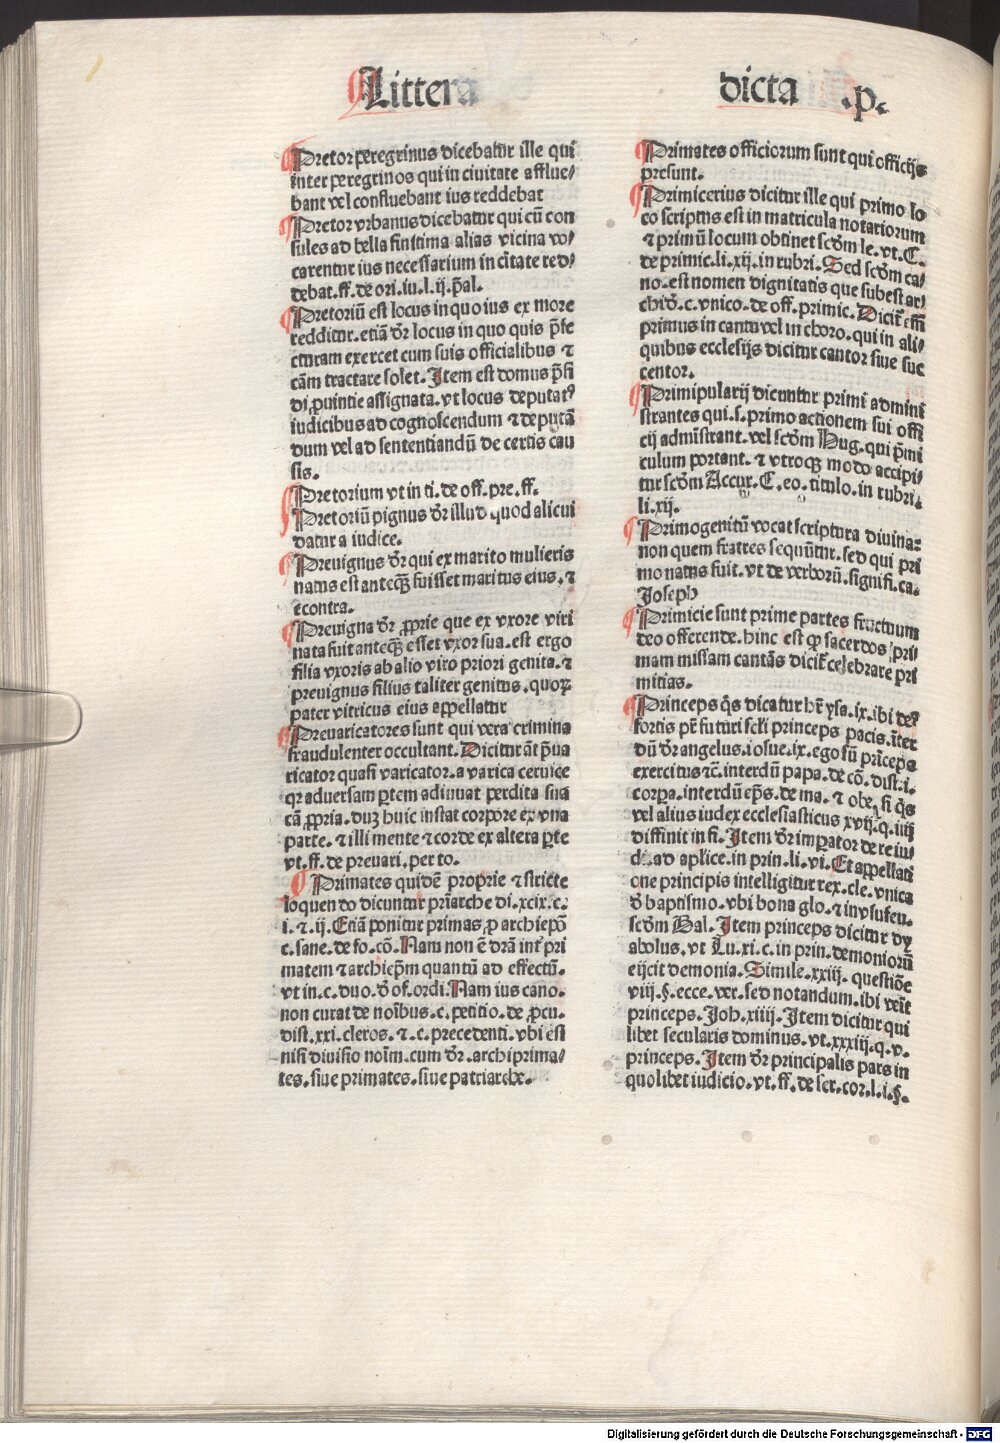 Littera dicta .p.
Pretor peregrinus dicebatur ille qui
inter peregrinos qui in ciuitate afflue/
bant vel confluebant ius reddebat
Pretor vrbanus dicebatur qui cū con
sules ad bella finitima alias vicina vo/
carentur ius necessarium in cītate red/
debat. ff. de ori. iu. l. ij. p̄al.
Pretoriū est locus in quo ius ex more
redditur. etiā dr̄ locus in quo quis p̄fe
cturam exercet cum suis officialibus ⁊
cām tractare solet. Item est domus p̄si
di ꝓuintie assignata. vt locus deputatꝰ
iudicibus ad cognoscendum ⁊ deputā
dum vel ad sententiandū de certis cau
sis.
Pretorium vt in ti. de off. pre. ff.
Pretoriū pignus dr̄ illud quod alicui
datur a iudice.
Preuignus dr̄ qui ex marito mulieris
natus est anteqꝫ fuisset maritus eius. ⁊
econtra.
Preuigna dr̄ ꝓprie que ex vxore viri
nata fuit anteqꝫ esset vxor sua. est ergo
filia vxoris ab alio viro priori genita. ⁊
preuignus filius taliter genitus. quoꝝ
pater vitricus eius appellatur
Preuaricatores sunt qui vera crimina
fraudulenter occultant. Dicitur āt p̄ua
ricator quasi varicator. a varica ceruice
qꝛ aduersam ꝑtem adiuuat perdita sua
cā ꝓpria. duꝫ huic instat corpore ex vna
parte. ⁊ illi mente ⁊ corde ex altera ꝑte
vt. ff. de preuari. per to.
Primates quidē proprie ⁊ stricte
loquendo dicuntur pr̄iarche di. xcix. c.
i. ⁊. ij. Etiā ponitur primas ꝓ archiepō
c. sane. de fo. cō. Nam non ē dr̄ā int̄ pri
matem ⁊ archiep̄m quantū ad effectū.
vt in. c. duo. d̄ of. ordi. Nam ius cano.
non curat de noībus. c. petitio. de ꝓcu.
dist. xxi. cleros. ⁊. c. precedenti. vbi est
nisi diuisio noīm. cum dr̄. archiprima/
tes. siue primates. siue patriarche.
Primates officiorum sunt qui officijs
presunt.
Primicerius dicitur ille qui primo lo
co scriptus est in matricula notariorum
⁊ primū locum obtinet scd̄m le. vt. C.
de primic. li. xij. in rubri. Sed scd̄m ca/
no. est nomen dignitatis que subest ar/
chid̄. c. vnico. de off. primic. Dicit̄ etiā
primus in cantu vel in choro. qui in ali/
quibus ecclesijs dicitur cantor siue suc
centor.
Primipularij dicuntur primi admini
strantes qui. s. primo actionem sui offi
cij admīstrant. vel scd̄m Hug. qui p̄mi
culum portant. ⁊ vtroqꝫ modo accipi/
tur scd̄m Accur. C. eo. titulo. in rubri.
li. xij.
Primogenitū vocat scriptura diuina:
non quem fratres sequūtur. sed qui pri
mo natus fuit. vt de verborū. signifi. ca.
Joseph
Primicie sunt prime partes fructuum
deo offerende. hinc est qꝙ sacerdos pri
mam missam cantās dicit̄ celebrare pri
mitias.
Princeps q̄s dicatur hr̄ ysa. ix. ibi deꝰ
fortis pr̄ futuri scl̄i princeps pacis. int̄er
dū dr̄ angelus. iosue. ix. ego sū prīceps
exercitus ⁊c̄. interdū papa. de cō. dist. i.
corpa. interdū ep̄s. de ma. ⁊ obe. si q̄s
vel alius iudex ecclesiasticus xvij. q. iiij
diffinit in fi. Item dr̄ imꝑator de re iu/
di. ad aplice. in prin. li. vi. Et appellati
one principis intelligitur rex. cle. vnica
d̄ baptismo. vbi bona glo. ⁊ in vsufeu.
scd̄m Bal. Item princeps dicitur dy
abolus. vt Lu. xi. c. in prin. demoniorū
eijcit demonia. Simile. xxiij. questiōe
viij. §. ecce. ver. sed notandum. ibi veīt
princeps. Joh. xiiij. Item dicitur qui
libet secularis dominus. vt. xxxiij. q. v.
princeps. Item dr̄ principalis pars in
quolibet iudicio. vt. ff. de ser. cor. l. i. §.
Digitalisierung gefördert durch die Deutsche Forschungsgemeinschaft - DFG